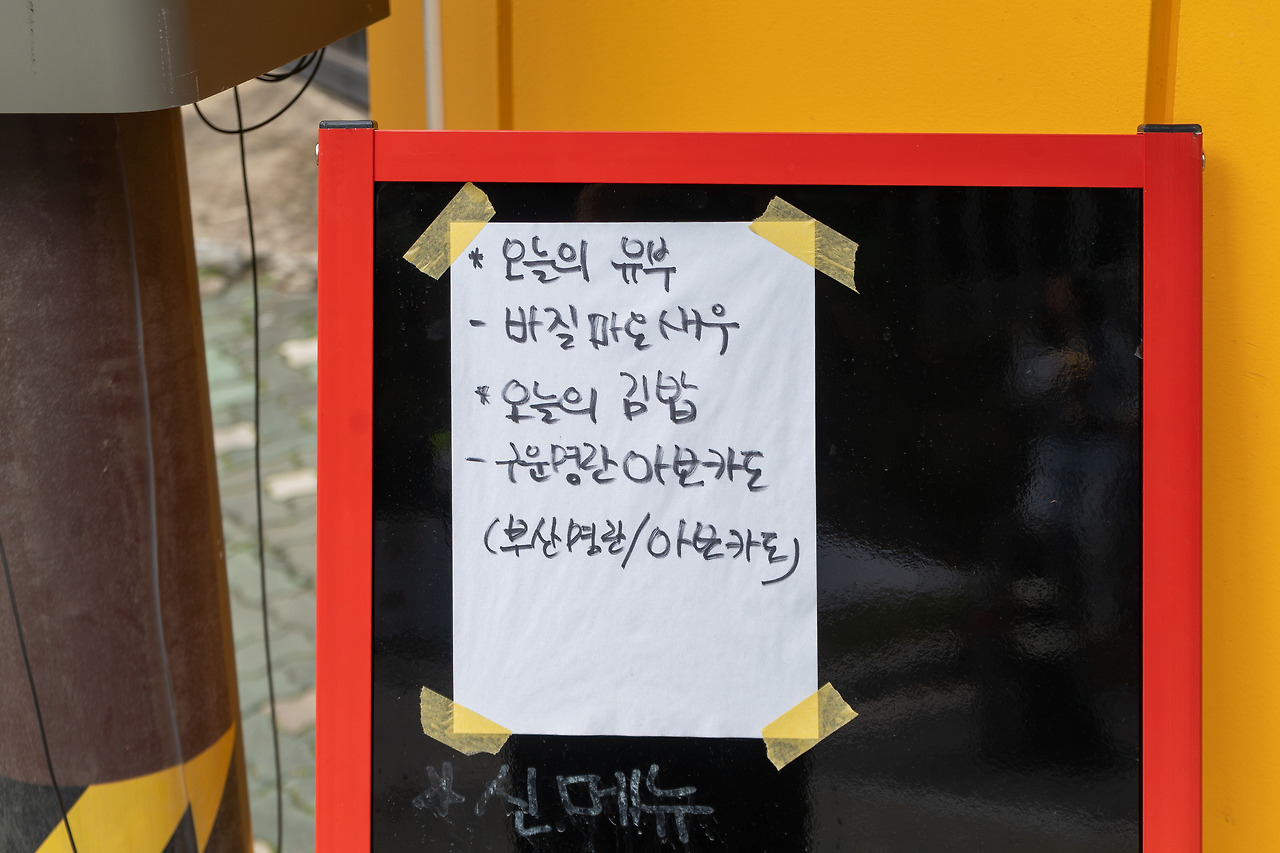 * 오늘의 유부
- 바질마요새우
* 오늘의 김밥
- 구운명란아보카도
(부산명란/아보카도)
* 신메뉴